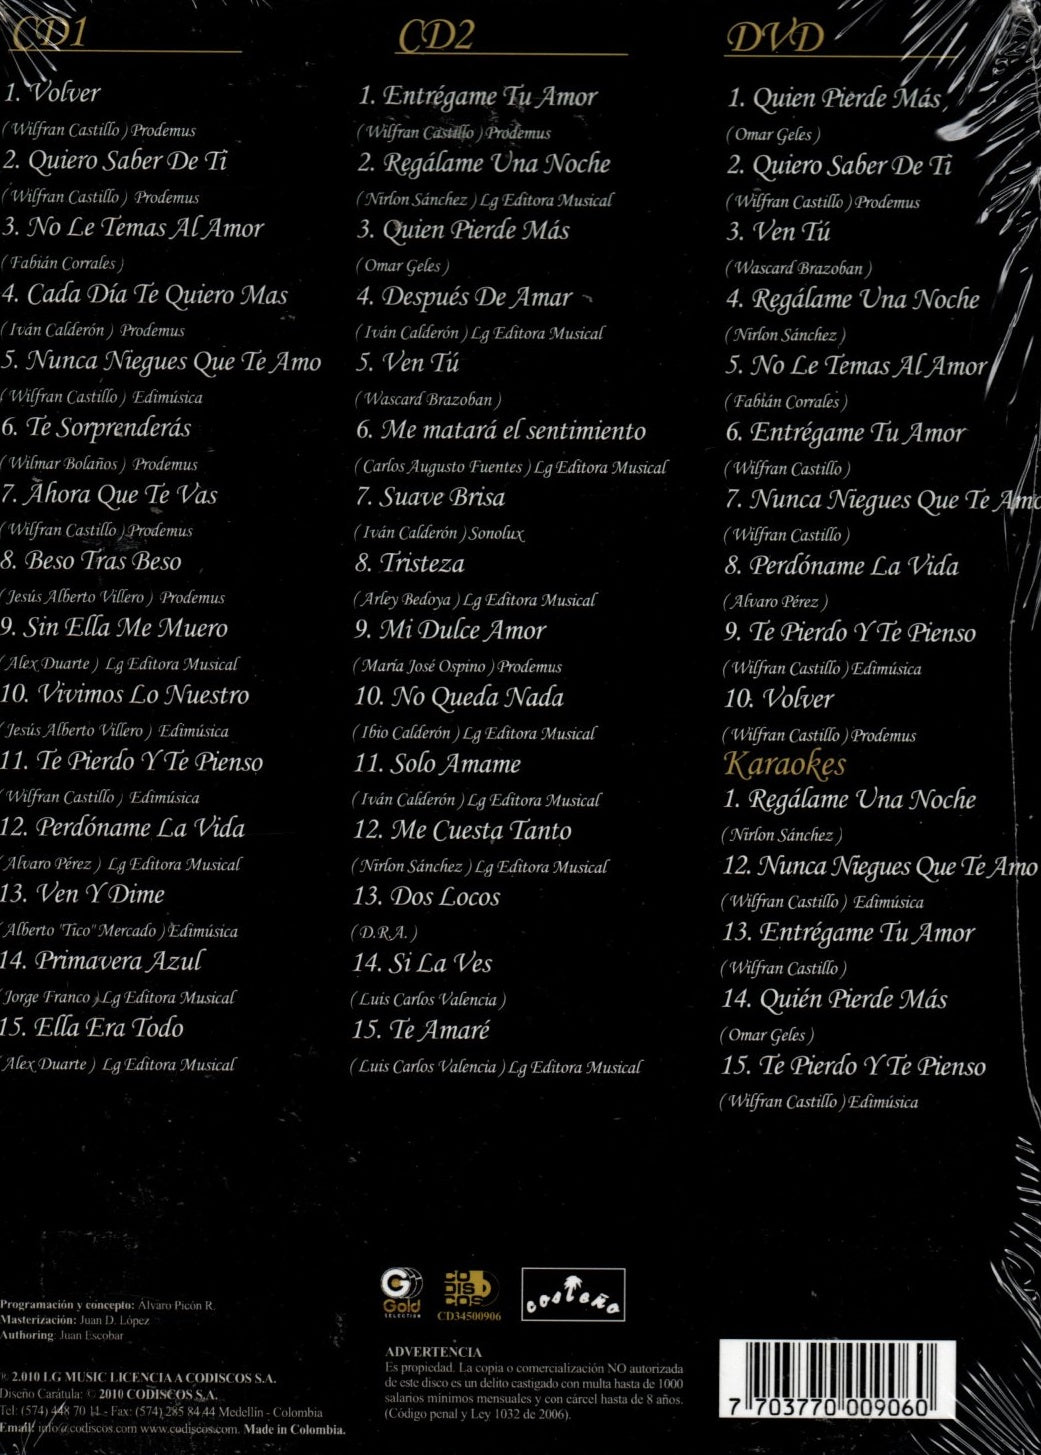 CD1
1. Volver
(Wilfran Castillo) Prodemus
2. Quiero Saber De Ti
(Wilfran Castillo) Prodemus
3. No Le Temas Al Amor
(Fabián Corrales)
4. Cada Día Te Quiero Mas
(Iván Calderón) Prodemus
5. Nunca Niegues Que Te Amo
(Wilfran Castillo) Edimúsica
6. Te Sorprenderás
(Wilmar Bolaños) Prodemus
7. Ahora Que Te Vas
(Wilfran Castillo) Prodemus
8. Beso Tras Beso
(Jesús Alberto Villero) Prodemus
9. Sin Ella Me Muero
(Alex Duarte) Lg Editora Musical
10. Vivimos Lo Nuestro
(Jesús Alberto Villero) Edimúsica
11. Te Pierdo Y Te Pienso
(Wilfran Castillo) Edimúsica
12. Perdóname La Vida
(Alvaro Pérez) Lg Editora Musical
13. Ven Y Dime
(Alberto "Tico" Mercado) Edimúsica
14. Primavera Azul
(Jorge Franco) Lg Editora Musical
15. Ella Era Todo
(Alex Duarte) Lg Editora Musical
CD2
1. Entrégame Tu Amor
(Wilfran Castillo) Prodemus
2. Regálame Una Noche
(Nirlon Sánchez) Lg Editora Musical
3. Quien Pierde Más
(Omar Geles)
4. Después De Amar
(Iván Calderón) Lg Editora Musical
5. Ven Tú
(Wascard Brazoban)
6. Me matará el sentimiento
(Carlos Augusto Fuentes) Lg Editora Musical
7. Suave Brisa
(Iván Calderón) Sonolux
8. Tristeza
(Arley Bedoya) Lg Editora Musical
9. Mi Dulce Amor
(María José Ospino) Prodemus
10. No Queda Nada
(Ibio Calderón) Lg Editora Musical
11. Solo Amame
(Iván Calderón) Lg Editora Musical
12. Me Cuesta Tanto
(Nirlon Sánchez) Lg Editora Musical
13. Dos Locos
(D.R.A.)
14. Si La Ves
(Luis Carlos Valencia)
15. Te Amaré
(Luis Carlos Valencia) Lg Editora Musical
DVD
1. Quien Pierde Más
(Omar Geles)
2. Quiero Saber De Ti
(Wilfran Castillo) Prodemus
3. Ven Tú
(Wascard Brazoban)
4. Regálame Una Noche
(Nirlon Sánchez)
5. No Le Temas Al Amor
(Fabián Corrales)
6. Entrégame Tu Amor
(Wilfran Castillo)
7. Nunca Niegues Que Te Amo
(Wilfran Castillo)
8. Perdóname La Vida
(Alvaro Pérez)
9. Te Pierdo Y Te Pienso
(Wilfran Castillo) Edimúsica
10. Volver
(Wilfran Castillo) Prodemus
Karaokes
1. Regálame Una Noche
(Nirlon Sánchez)
12. Nunca Niegues Que Te Amo
(Wilfran Castillo) Edimúsica
13. Entrégame Tu Amor
(Wilfran Castillo)
14. Quién Pierde Más
(Omar Geles)
15. Te Pierdo Y Te Pienso
(Wilfran Castillo) Edimúsica
Programación y concepto: Álvaro Picón R.
Masterización: Juan D. López
Authoring: Juan Escobar
℗ 2.010 LG MUSIC LICENCIA A CODISCOS S.A.
Diseño Carátula: © 2010 CODISCOS S.A.
Tel: (574) 448 70 11 - Fax: (574) 285 84 44 Medellín - Colombia
Email: info@codiscos.com www.codiscos.com. Made in Colombia.
G
Gold
SELECTION
CO
DIS
COS
CD34500906
costeño
ADVERTENCIA
Es propiedad. La copia o comercialización NO autorizada
de este disco es un delito castigado con multa hasta de 1000
salarios mínimos mensuales y con cárcel hasta de 8 años.
(Código penal y Ley 1032 de 2006).
7 703770 009060